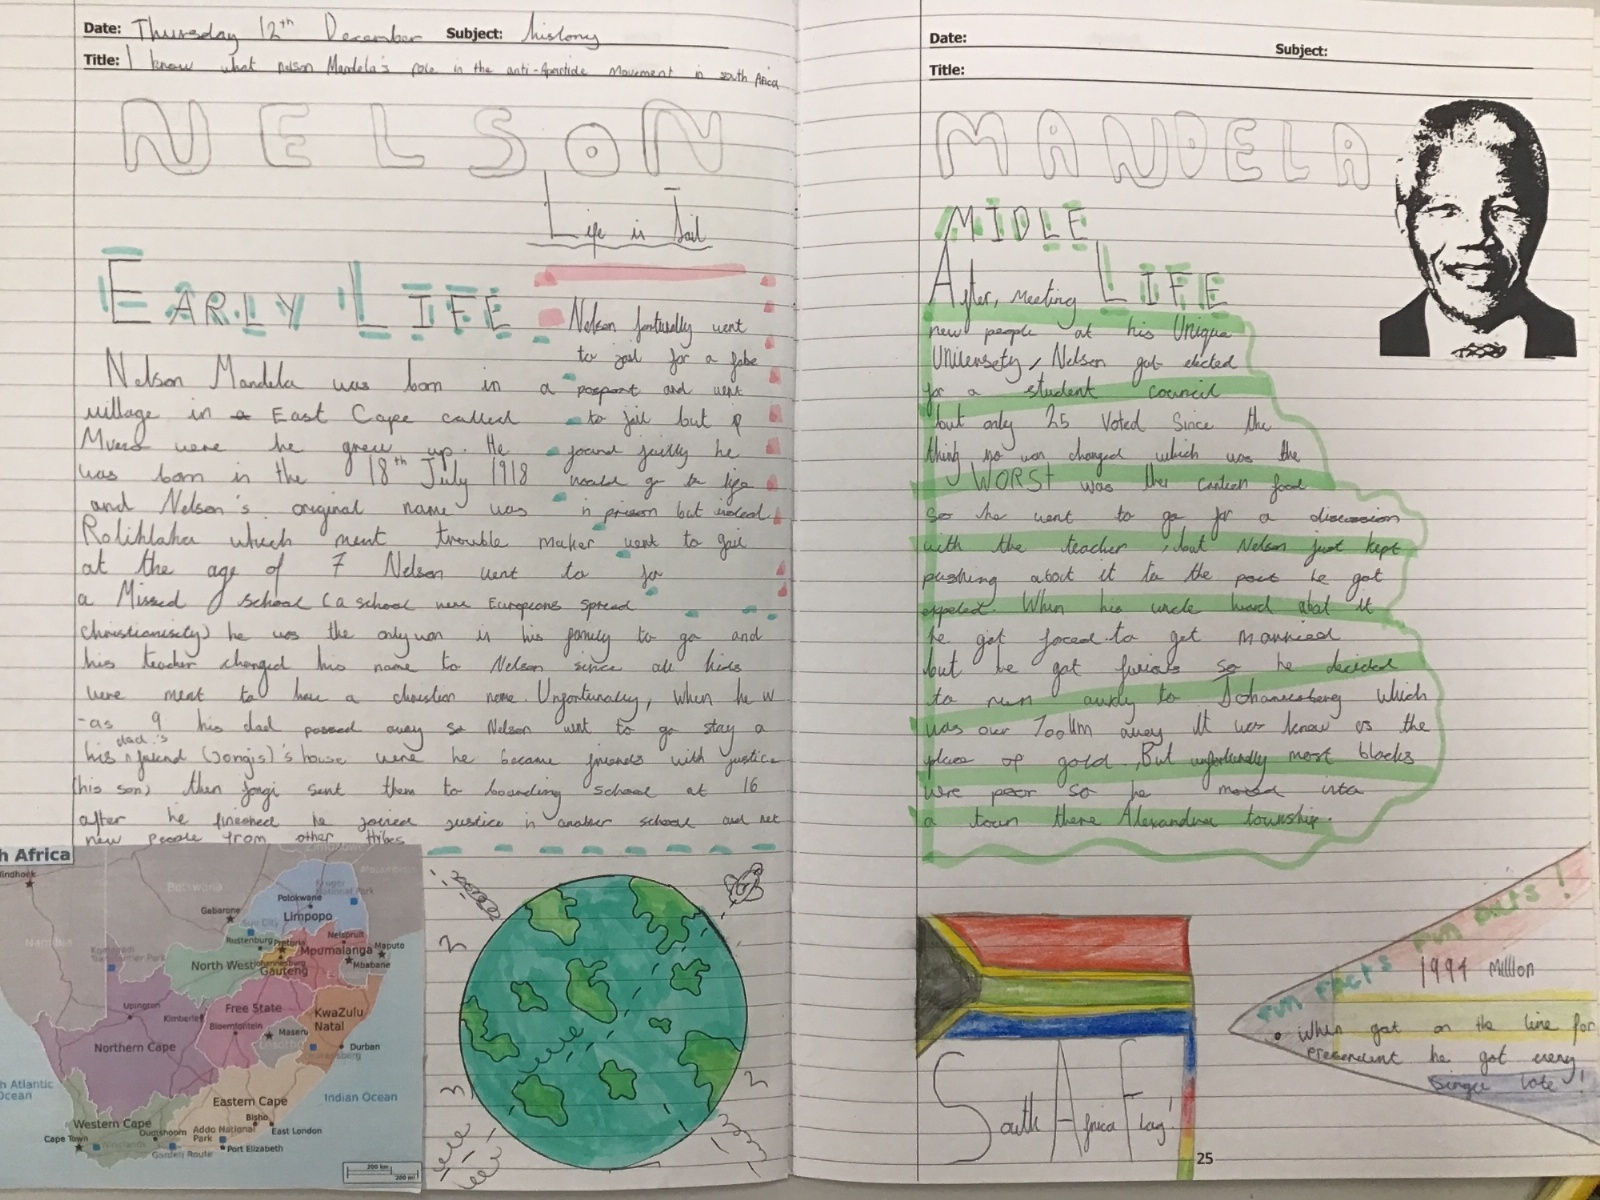 Date: Thursday 12th December Subject: history
Title: I know what nelson Mandela's role in the anti-Apartide Movement in south Africa
NELSON
Life in Jail
EARLY LIFE
Nelson Mandela was born in a
village in a East Cape called
Mvezo were he grew up. He
was born in the 18th July 1918
and Nelson's original name was
Rolihlaha which ment trouble maker
at the age of 7 Nelson went to
a Missed school (a school were Europeans spread
christianisity) he was the only won in his family to go and
his teacher changed his name to Nelson since all kids
were ment to have a christian name. Unfortunally, when he w
-as 9 his dad passed away so Nelson went to go stay a
his dad's friend (Jongis)'s house were he became friends with justice
(his son) then jongi sent them to boarding school at 16
after he fineshed he joined justice in another school and met
new people from other tribes
Nelson fortunally went
to jail for a fake
pasport and went
to jail but if
found guilty he
would go to life
in prison but indeed
went to jail
for
h Africa
Windhoek
Botswana
Namibia
Gaborone
Polokwane
Limpopo
Kruger National Park
Sun City
Rustenburg
Pretoria
Nelspruit
Mpumalanga
Maputo
Mbabane
North West
Johannesburg
Gauteng
Upington
Kimberley
Free State
Bloemfontein
Maseru
KwaZulu
Natal
Durban
Northern Cape
h Atlantic
Ocean
Indian Ocean
Eastern Cape
Bisho
East London
Western Cape
Oudtshoorn
Addo National
Park
Port Elizabeth
Cape Town
Winelands
Garden Route
200 km
Date:
Subject:
Title:
MANDELA
MIDLE
LIFE
After, meeting
new people at his Unique
Uniuersety, Nelson got elected
for a student council
but only 25 voted since the
thing no won changed which was the
WORST was the canteen food
so he went to go for a discussion
with the teacher, but Nelson just kept
pushing about it to the point he got
expeled. When his uncle heard about it
he got forced to get married
but he got furiois so he decided
to run away to Johannesberg which
was over 700km away It was know as the
place of gold. But unfortunally most blacks
were poor so he moved into
a town there Alexandra township.
FUN FACTS FUN FACTS!
1994 Million
• When got on the line for
presendent he got every
single vote!
South Africa Flag!
25